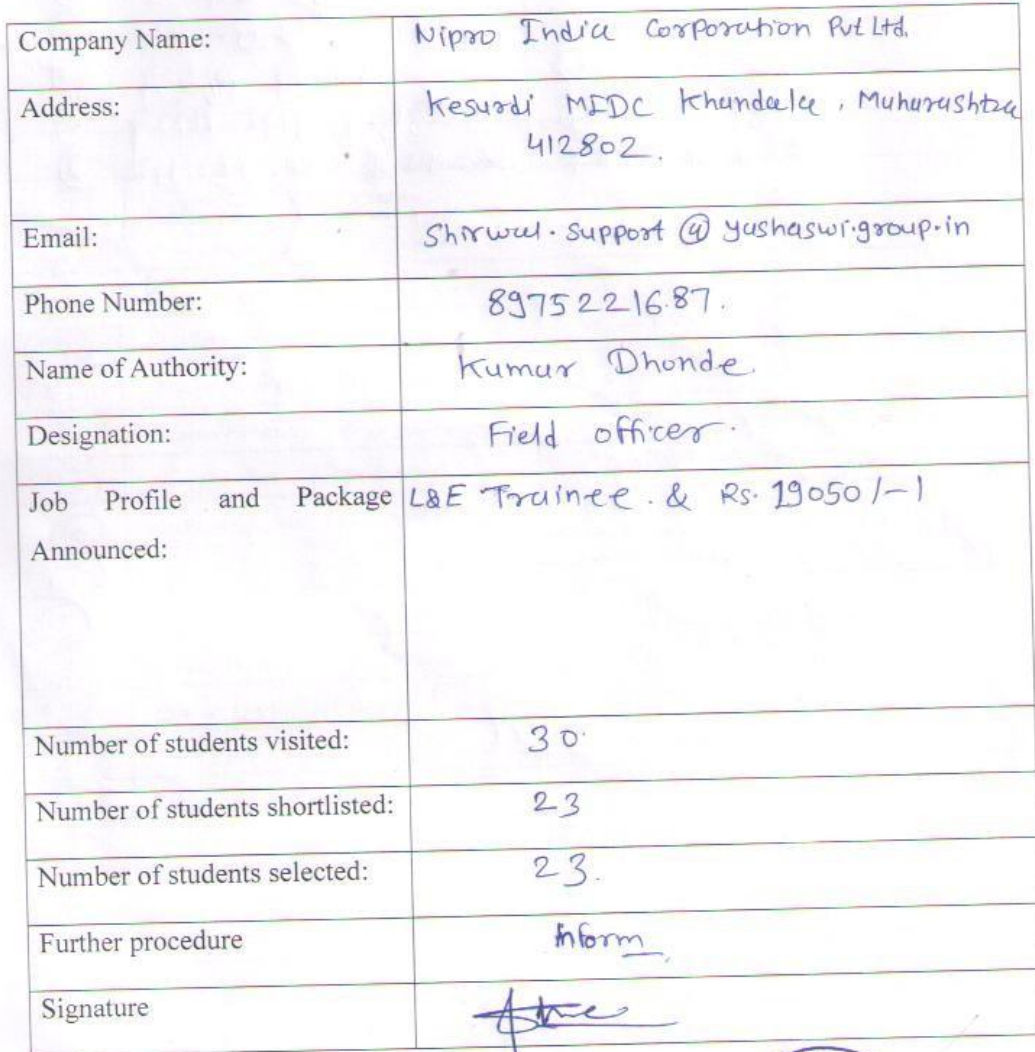 Company Name: Nipro India Corporation Pvt Ltd.
Address: Kesurdi MIDC Khandala, Maharashtra
412802.
Email: Shirwal.support@yashaswigroup.in
Phone Number: 8975221687.
Name of Authority: Kumar Dhonde.
Designation: Field officer.
Job Profile and Package L&E Trainee. & Rs. 19050/-
Announced:
Number of students visited: 30
Number of students shortlisted: 23
Number of students selected: 23.
Further procedure Inform
Signature